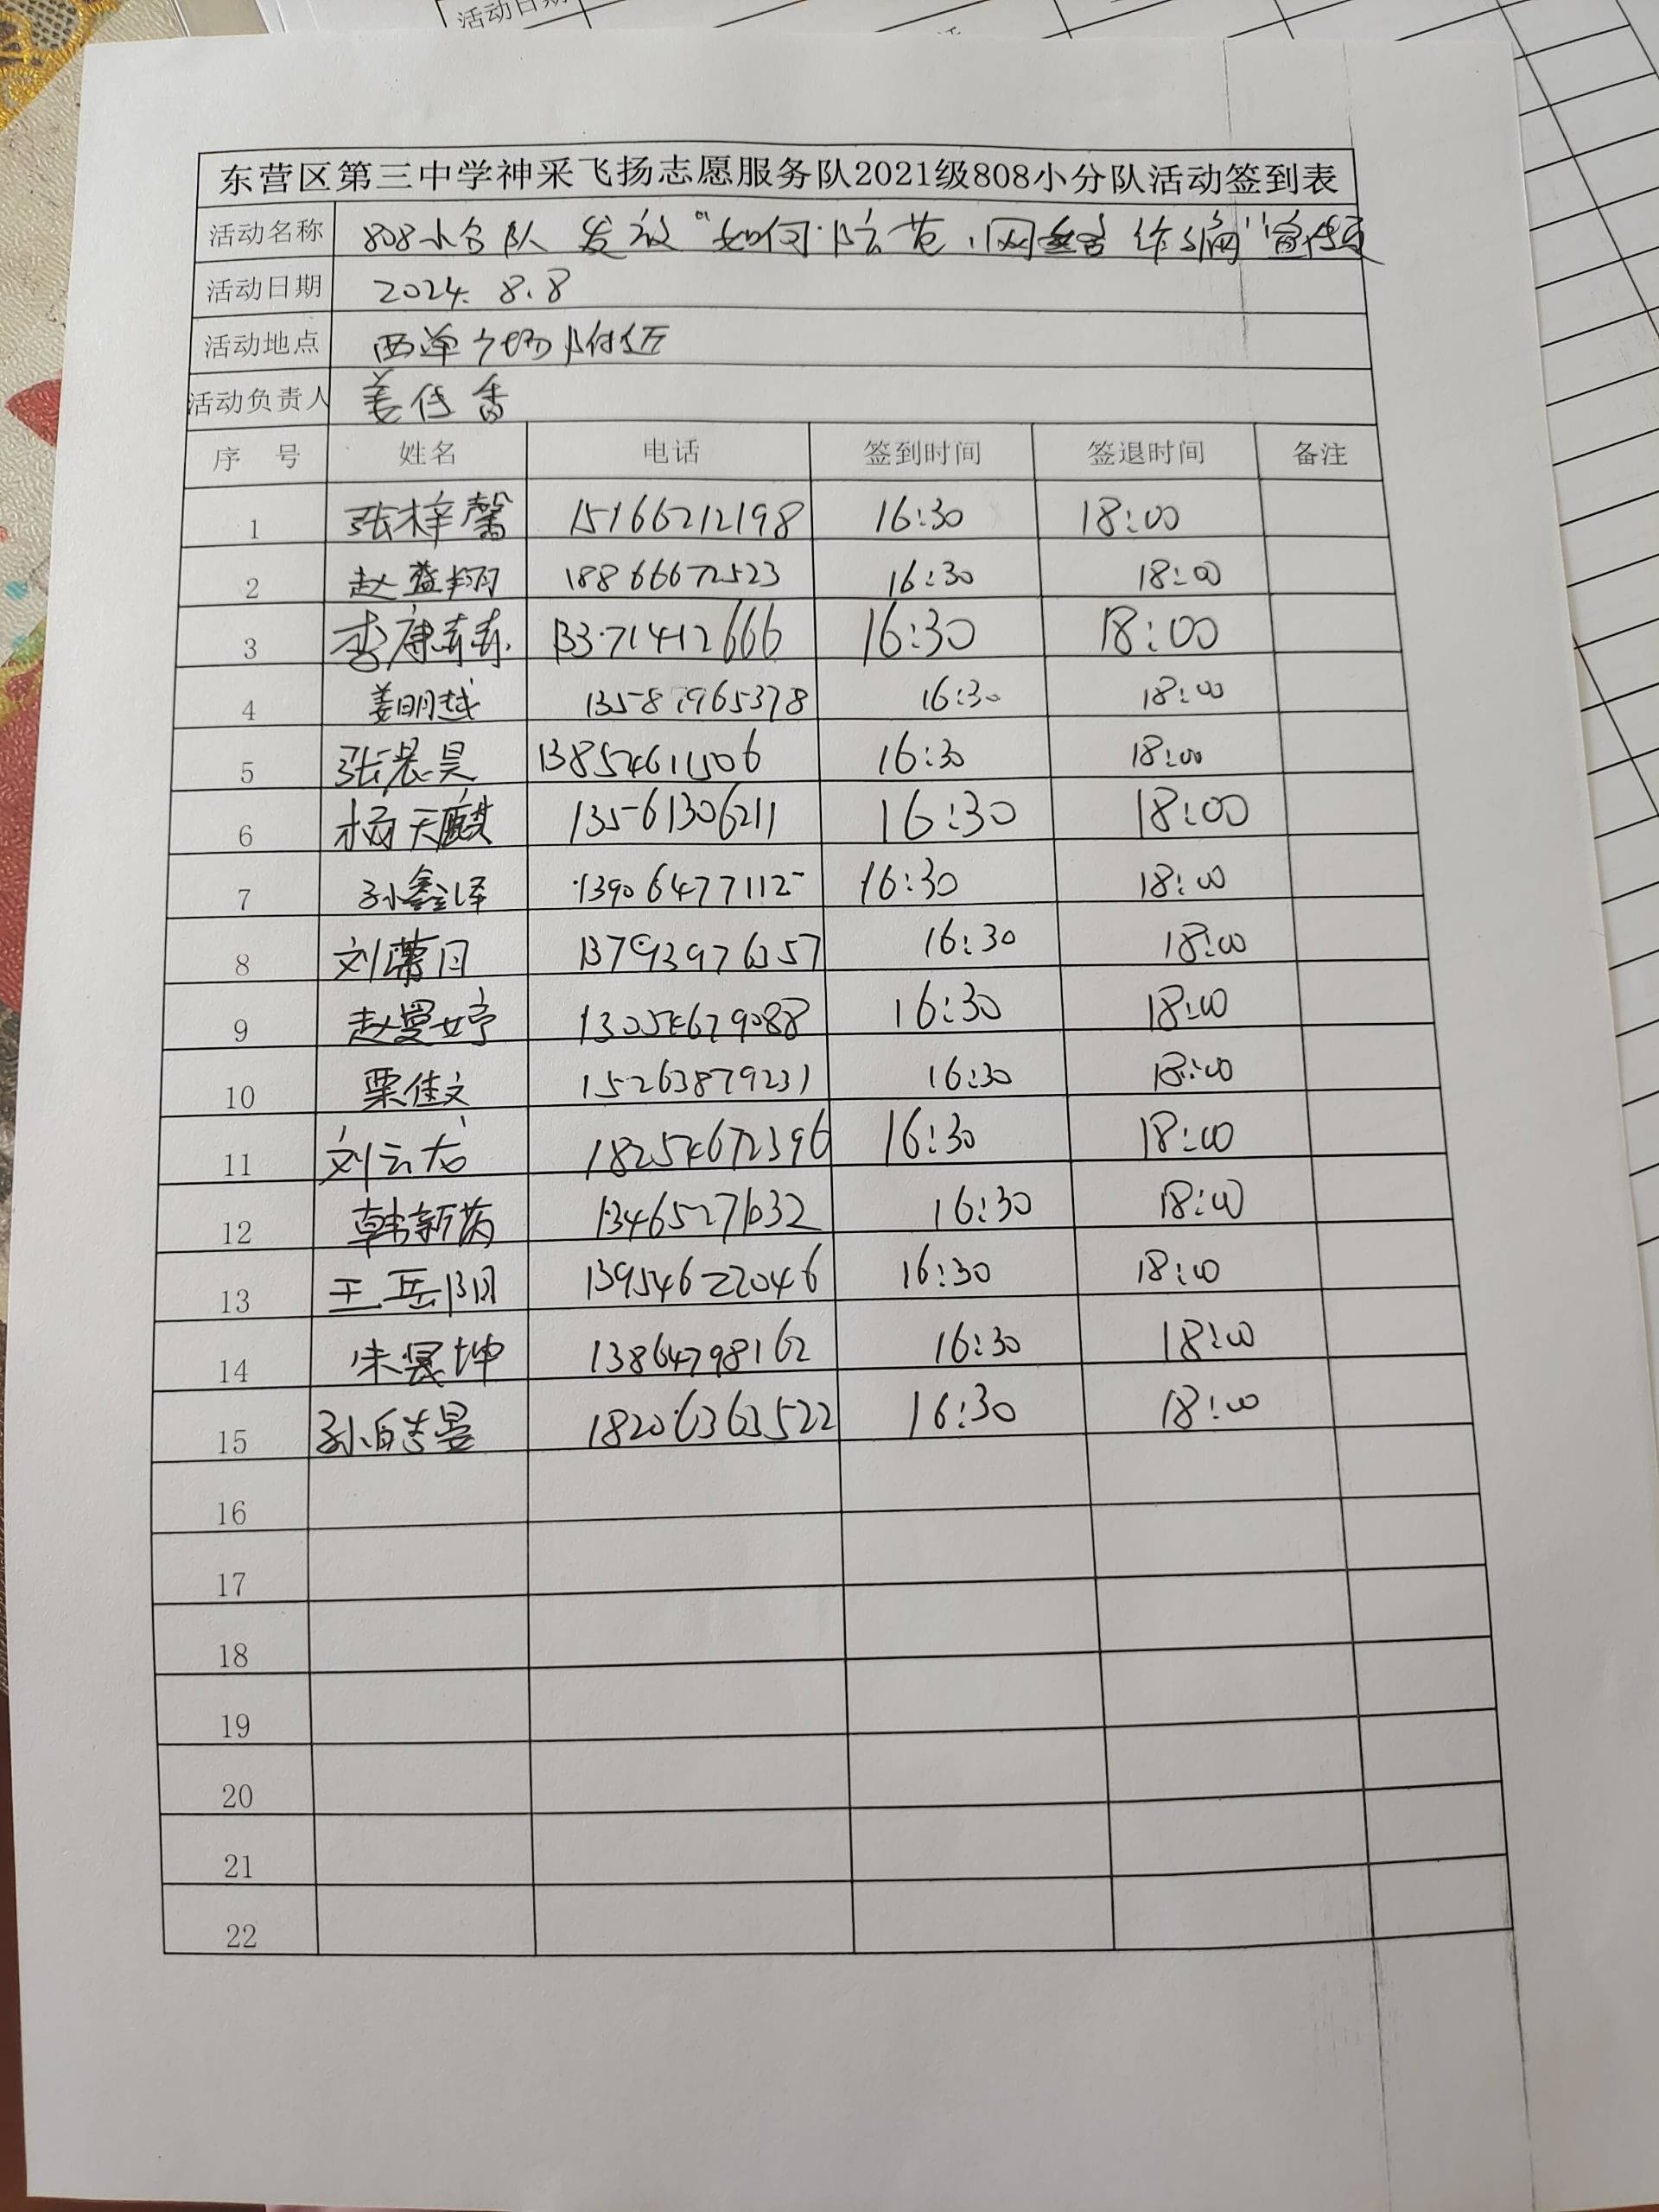 活动日期
东营区第三中学神采飞扬志愿服务队2021级808小分队活动签到表
活动名称 808小分队 发放"如何防范网络诈骗"宣传页
活动日期 2024. 8.8
活动地点 西单广场附近
活动负责人 姜传香
序 号 姓名 电话 签到时间 签退时间 备注
1 张梓馨 15166212198 16:30 18:00
2 赵益翔 18866672523 16:30 18:00
3 李康 13371412666 16:30 18:00
4 姜明越 13587965378 16:30 18:00
5 张晨昊 13854611506 16:30 18:00
6 杨天麒 13561306211 16:30 18:00
7 孙鑫泽 13906477112 16:30 18:00
8 刘 月 13793976357 16:30 18:00
9 赵曼婷 13054679088 16:30 18:00
10 栗佳文 15263879231 16:30 18:00
11 刘云龙 18254672396 16:30 18:00
12 韩新芮 1346527632 16:30 18:00
13 王岳阳 13954622046 16:30 18:00
14 朱 坤 13864798162 16:30 18:00
15 孙 18206363522 16:30 18:00
16
17
18
19
20
21
22